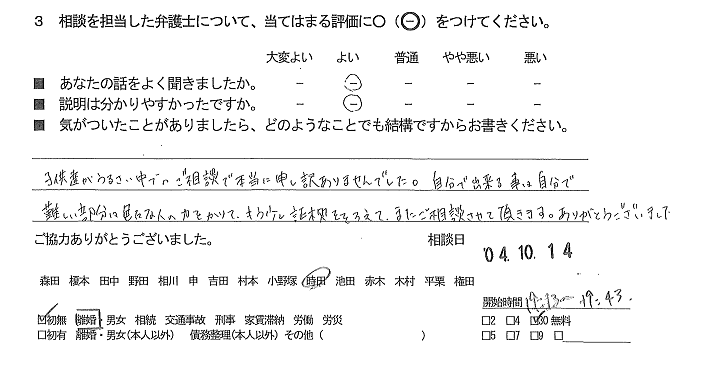 3 相談を担当した弁護士について、当てはまる評価に○(⊖)をつけてください。
大変よい よい 普通 やや悪い 悪い
■ あなたの話をよく聞きましたか。 － － － － －
■ 説明は分かりやすかったですか。 － － － － －
■ 気がついたことがありましたら、どのようなことでも結構ですからお書きください。
子供達がうるさい中でのご相談で本当に申し訳ありませんでした。自分で出来る事は自分で
難しい部分は色々な人の力をかりて、もう少し証拠をそろえて、またご相談させて頂きます。ありがとうございました
ご協力ありがとうございました。 相談日 '04.10.14
森田 榎本 田中 野田 相川 申 吉田 村本 小野塚 時田 池田 赤木 木村 平栗 権田
開始時間 19:13〜19:43.
☑初無 離婚・男女 相続 交通事故 刑事 家賃滞納 労働 労災 □2 □4 ☑30 無料
□初有 離婚・男女(本人以外) 債務整理(本人以外) その他( ) □5 □7 □9 □